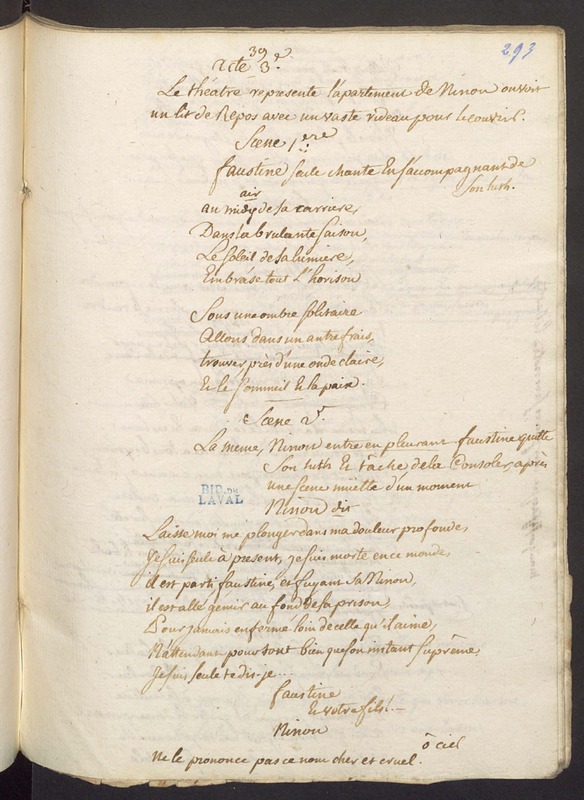 293
39
acte 3.e
Le théatre represente l'apartement de Ninon on voit
un lit de Repos avec un vaste rideau pour le couvrir.
Scene 1.ere
faustine seule chante En s'accompagnant de
son luth.
air
au midy de sa carriere,
Dans la brulante saison,
Le soleil de sa lumiere,
Embráse tout L'horison
Sous une ombre solitaire
Allons dans un antre frais,
trouver près d'une onde claire,
Et le sommeil Et la paix.
Scene 2.e
La meme, Ninon entre en pleurant faustine quitte
son luth Et tâche de la Consoler, après
une scene müette d'un moment
BIB. DE
LAVAL
Ninon dit
Laisse moi me plonger dans ma douleur profonde,
Je suis seule à present, je suis morte en ce monde,
il est parti faustine, et fuyant sa Ninon,
il est allé gemir au fond de sa prison,
Pour jamais enfermé loin de celle qu'il aime,
N'attendant pour tout bien que son instant suprême.
Je suis seule te dis-je...
faustine
Et votre fils! —
Ninon
ô ciel
Ne le prononce pas ce nom cher et cruel.